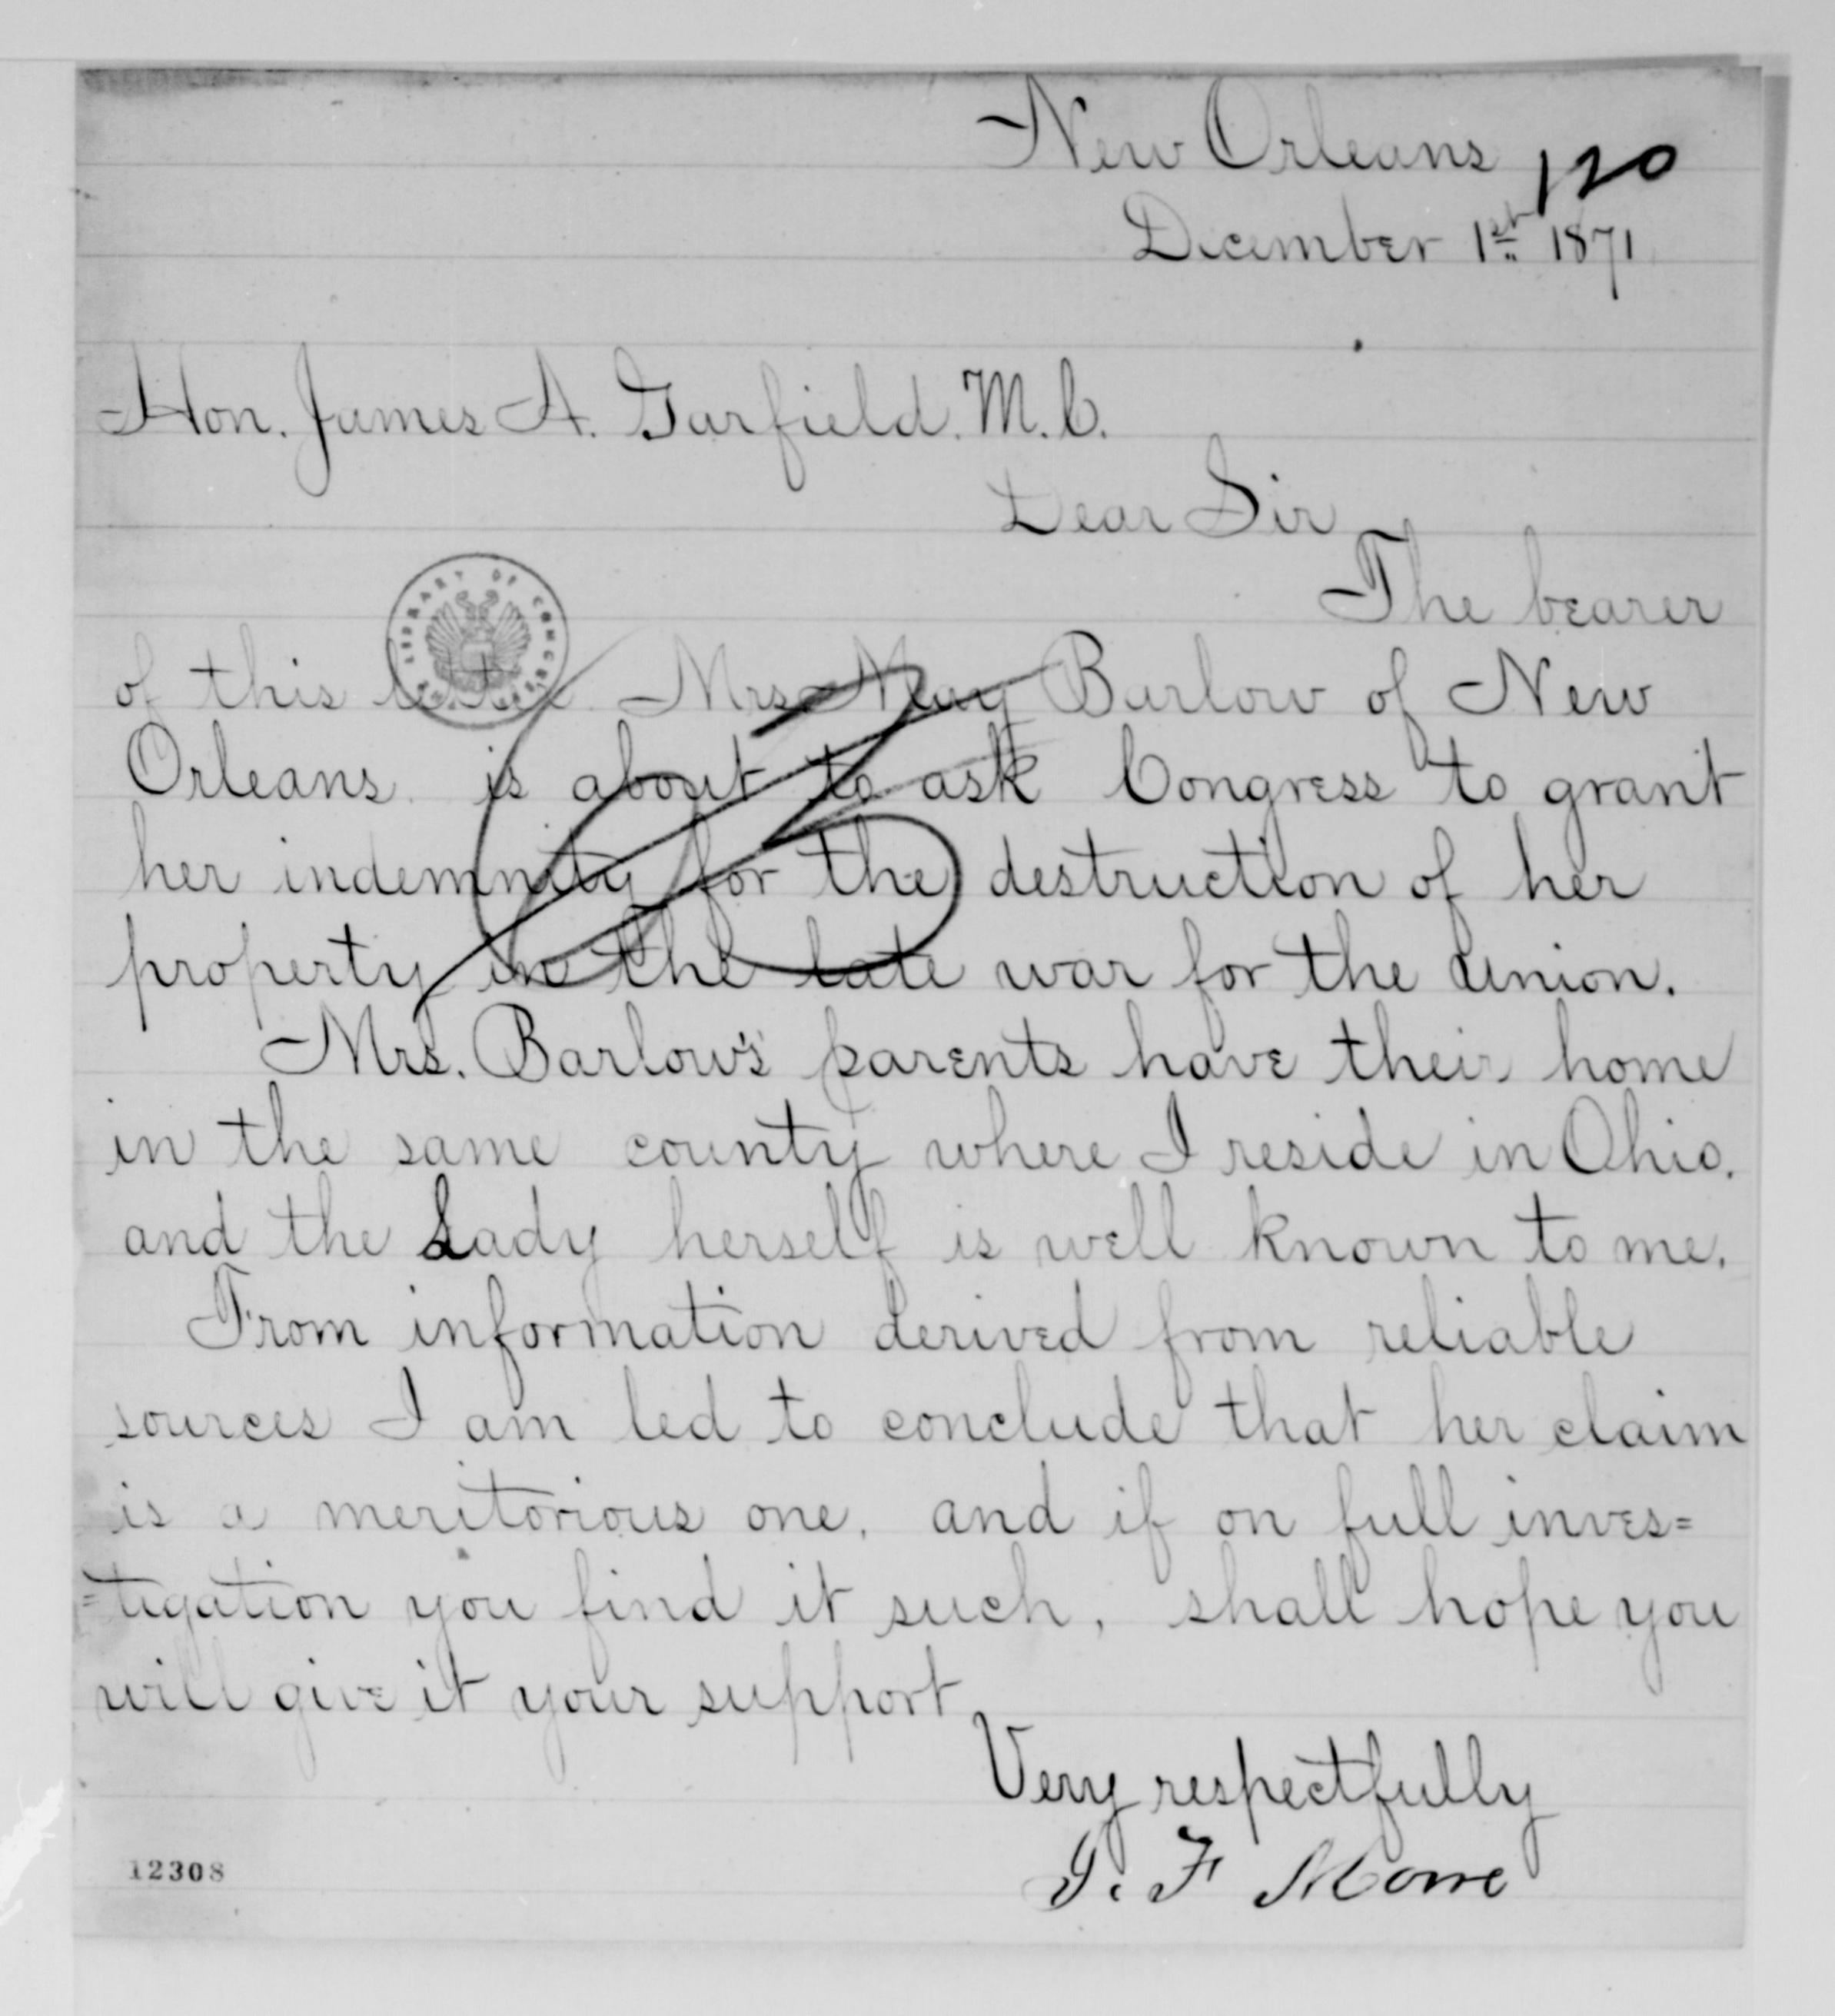 New Orleans 120
December 1st 1871
Hon. James A. Garfield. M.C.
Dear Sir
The bearer
LIBRARY OF CONGRESS
of this letter Mrs May Barlow of New
Orleans is about to ask Congress to grant
her indemnity for the destruction of her
property in the late war for the union.
Mrs. Barlow's parents have their home
in the same county where I reside in Ohio.
and the Lady herself is well known to me.
From information derived from reliable
sources I am led to conclude that her claim
is a meritorious one, and if on full inves=
=tigation you find it such, shall hope you
will give it your support
Very respectfully
F
12308